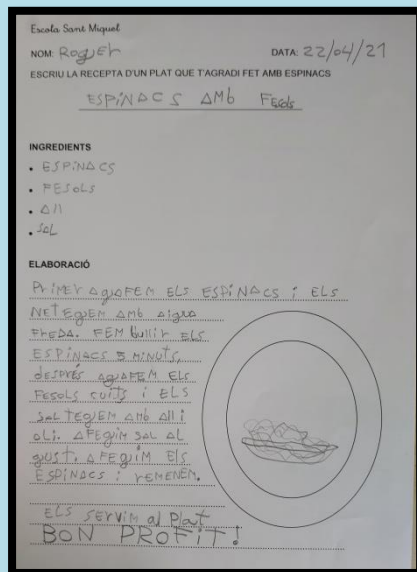 Escola Sant Miquel
NOM: Roger DATA: 22/04/21
ESCRIU LA RECEPTA D'UN PLAT QUE T'AGRADI FET AMB ESPINACS
ESPINACS AMB FESOLS
INGREDIENTS
• ESPINACS
• FESOLS
• All
• SAL
ELABORACIÓ
PRIMER AGAFEM ELS ESPINACS i ELS
NETEGEM AMB AIGUA
FREDA. FEM bullir ELS
ESPINACS 5 MINUTS,
dESPRÉS AGAFEM ELS
FESOLS CUITS i ELS
SALTEGEM AMB All i
oli. AFEGIM SAL AL
gUST. AFEGIM ELS
ESPINACS i rEMENEM.
ELS SErVIM al Plat
BON PROFIT!